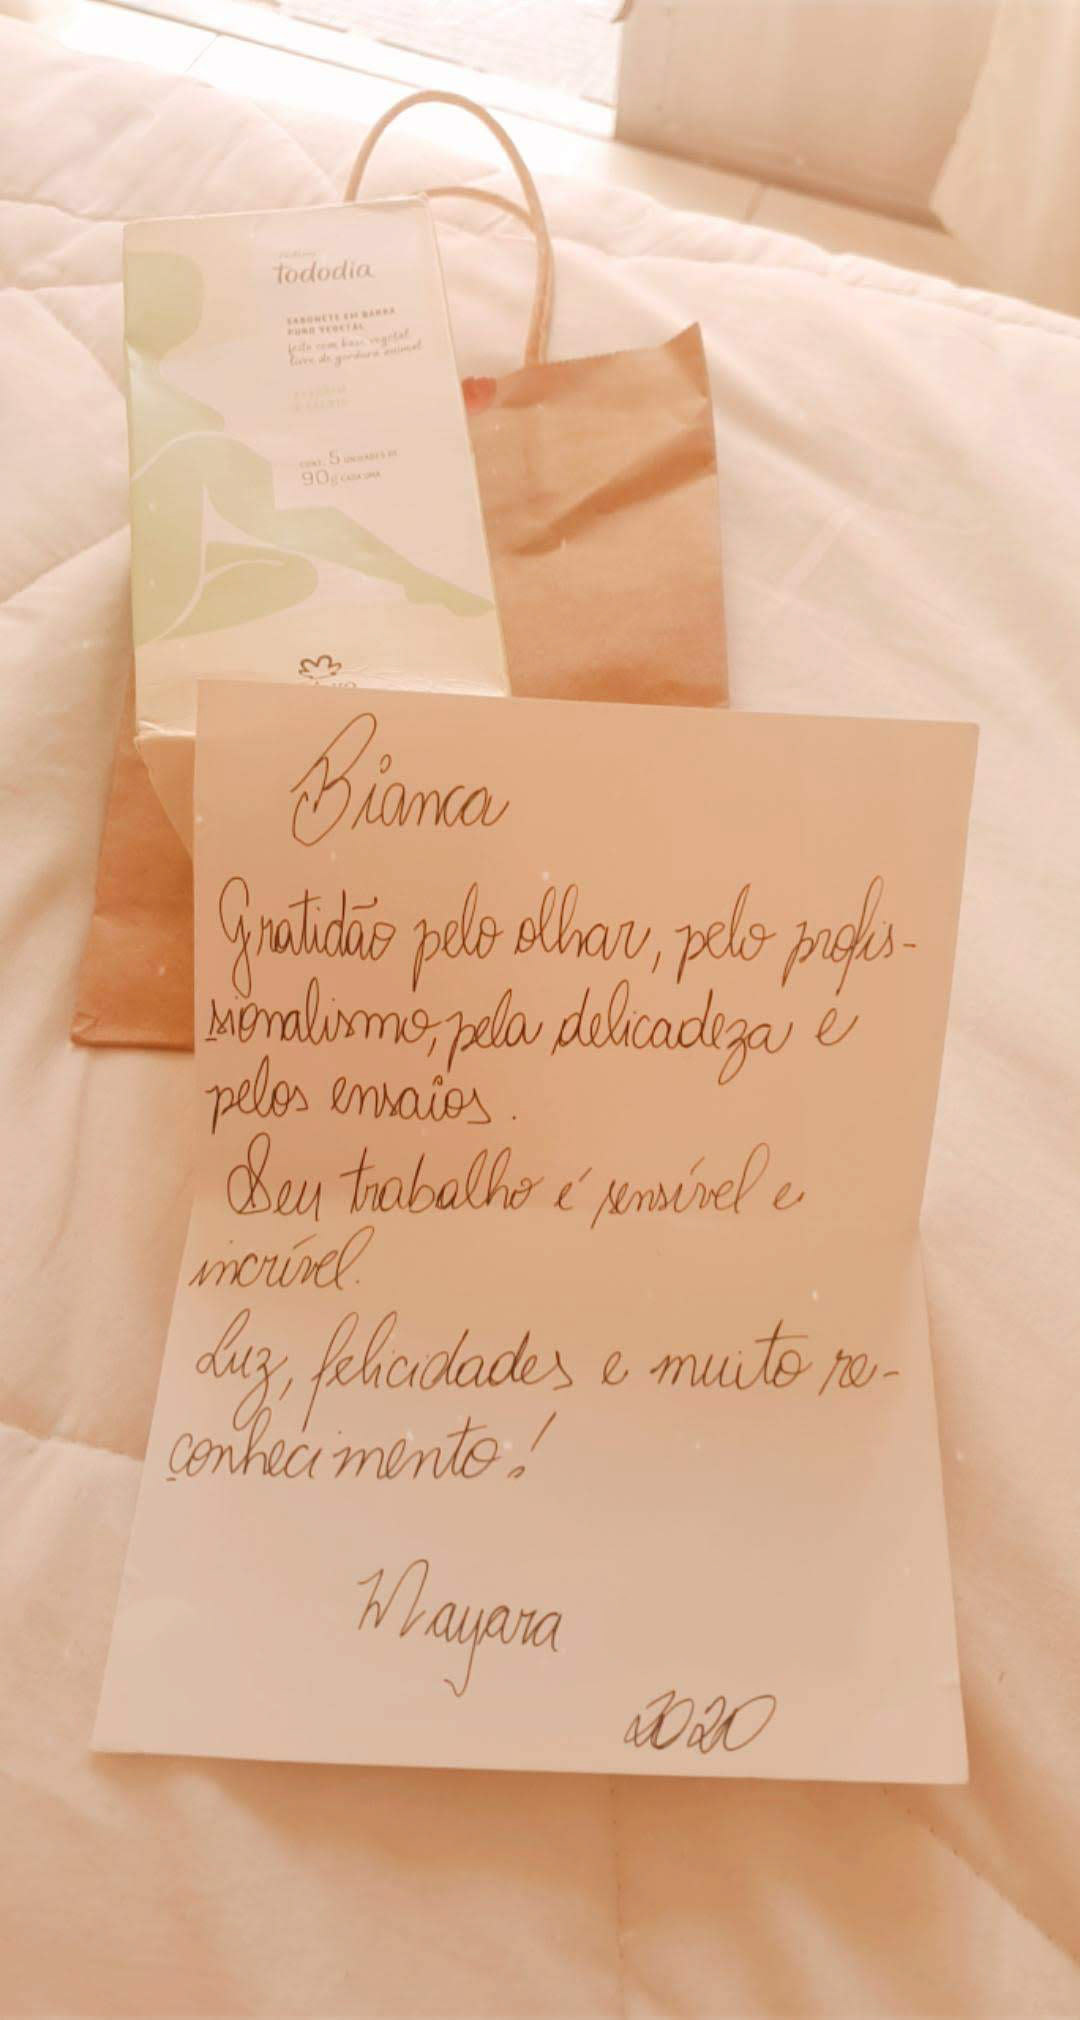 tododia
SABONETE EM BARRA
PURO VEGETAL
feito com base vegetal
livre de gordura animal
CONT. 5 UNIDADES DE
90g CADA UMA
Bianca
Gratidão pelo olhar, pelo profis-
sionalismo, pela delicadeza e
pelos ensaios.
Seu trabalho é sensível e
incrível.
Luz, felicidades e muito re-
conhecimento!
Mayara
2020